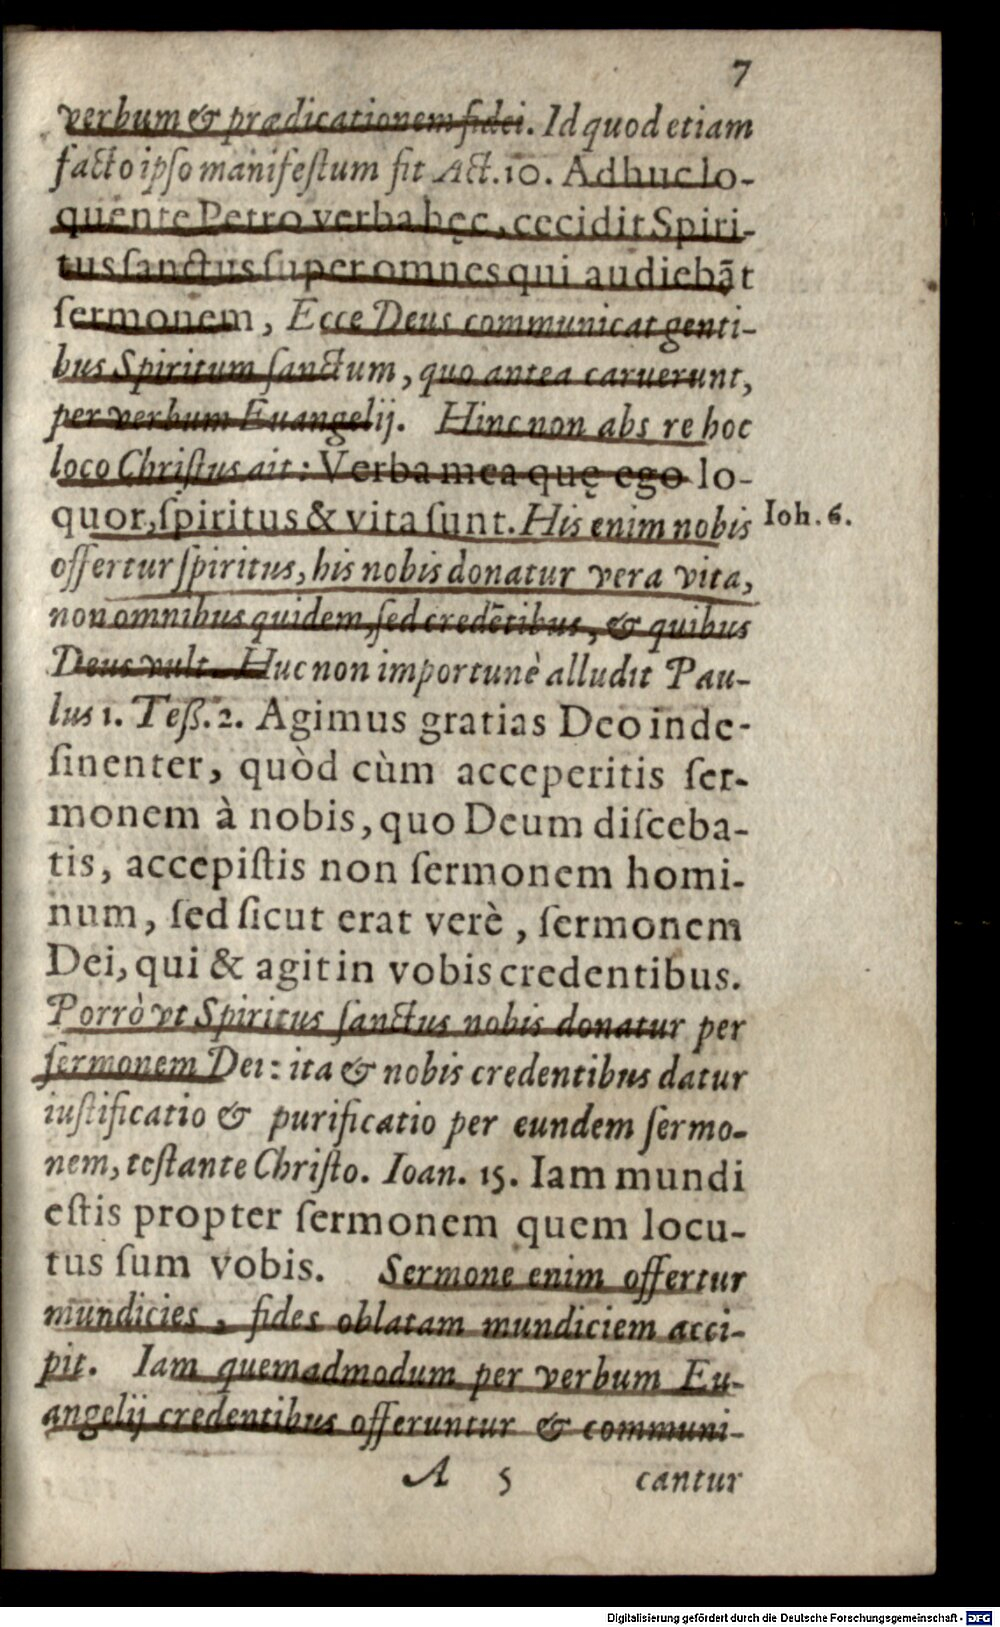 7
verbum & prædicationem fidei. Id quod etiam
facto ipso manifeſtum fit Act. 10. Adhuc lo-
quente Petro verba hęc, cecidit Spiri-
tus ſanctus ſuper omnes qui audiebāt
ſermonem, Ecce Deus communicat genti-
bus Spiritum ſanctum, quo antea caruerunt,
per verbum Euangelij. Hinc non abs re hoc
loco Chriſtus ait: Verba mea quę ego lo-
quor, ſpiritus & vita ſunt. His enim nobis
Ioh. 6.
offertur ſpiritus, his nobis donatur vera vita,
non omnibus quidem, ſed credētibus, & quibus
Deus vult. Huc non importunè alludit Pau-
lus 1. Teß. 2. Agimus gratias Deo inde-
ſinenter, quòd cùm acceperitis ſer-
monem à nobis, quo Deum diſceba-
tis, accepiſtis non ſermonem homi-
num, ſed ſicut erat verè, ſermonem
Dei, qui & agit in vobis credentibus.
Porrò vt Spiritus ſanctus nobis donatur per
ſermonem Dei: ita & nobis credentibus datur
iuſtificatio & purificatio per eundem ſermo-
nem, teſtante Chriſto. Ioan. 15. Iam mundi
eſtis propter ſermonem quem locu-
tus ſum vobis. Sermone enim offertur
mundicies, fides oblatam mundiciem acci-
pit. Iam quemadmodum per verbum Eu-
angelij credentibus offeruntur & communi-
A 5 cantur
Digitalisierung gefördert durch die Deutsche Forschungsgemeinschaft - DFG